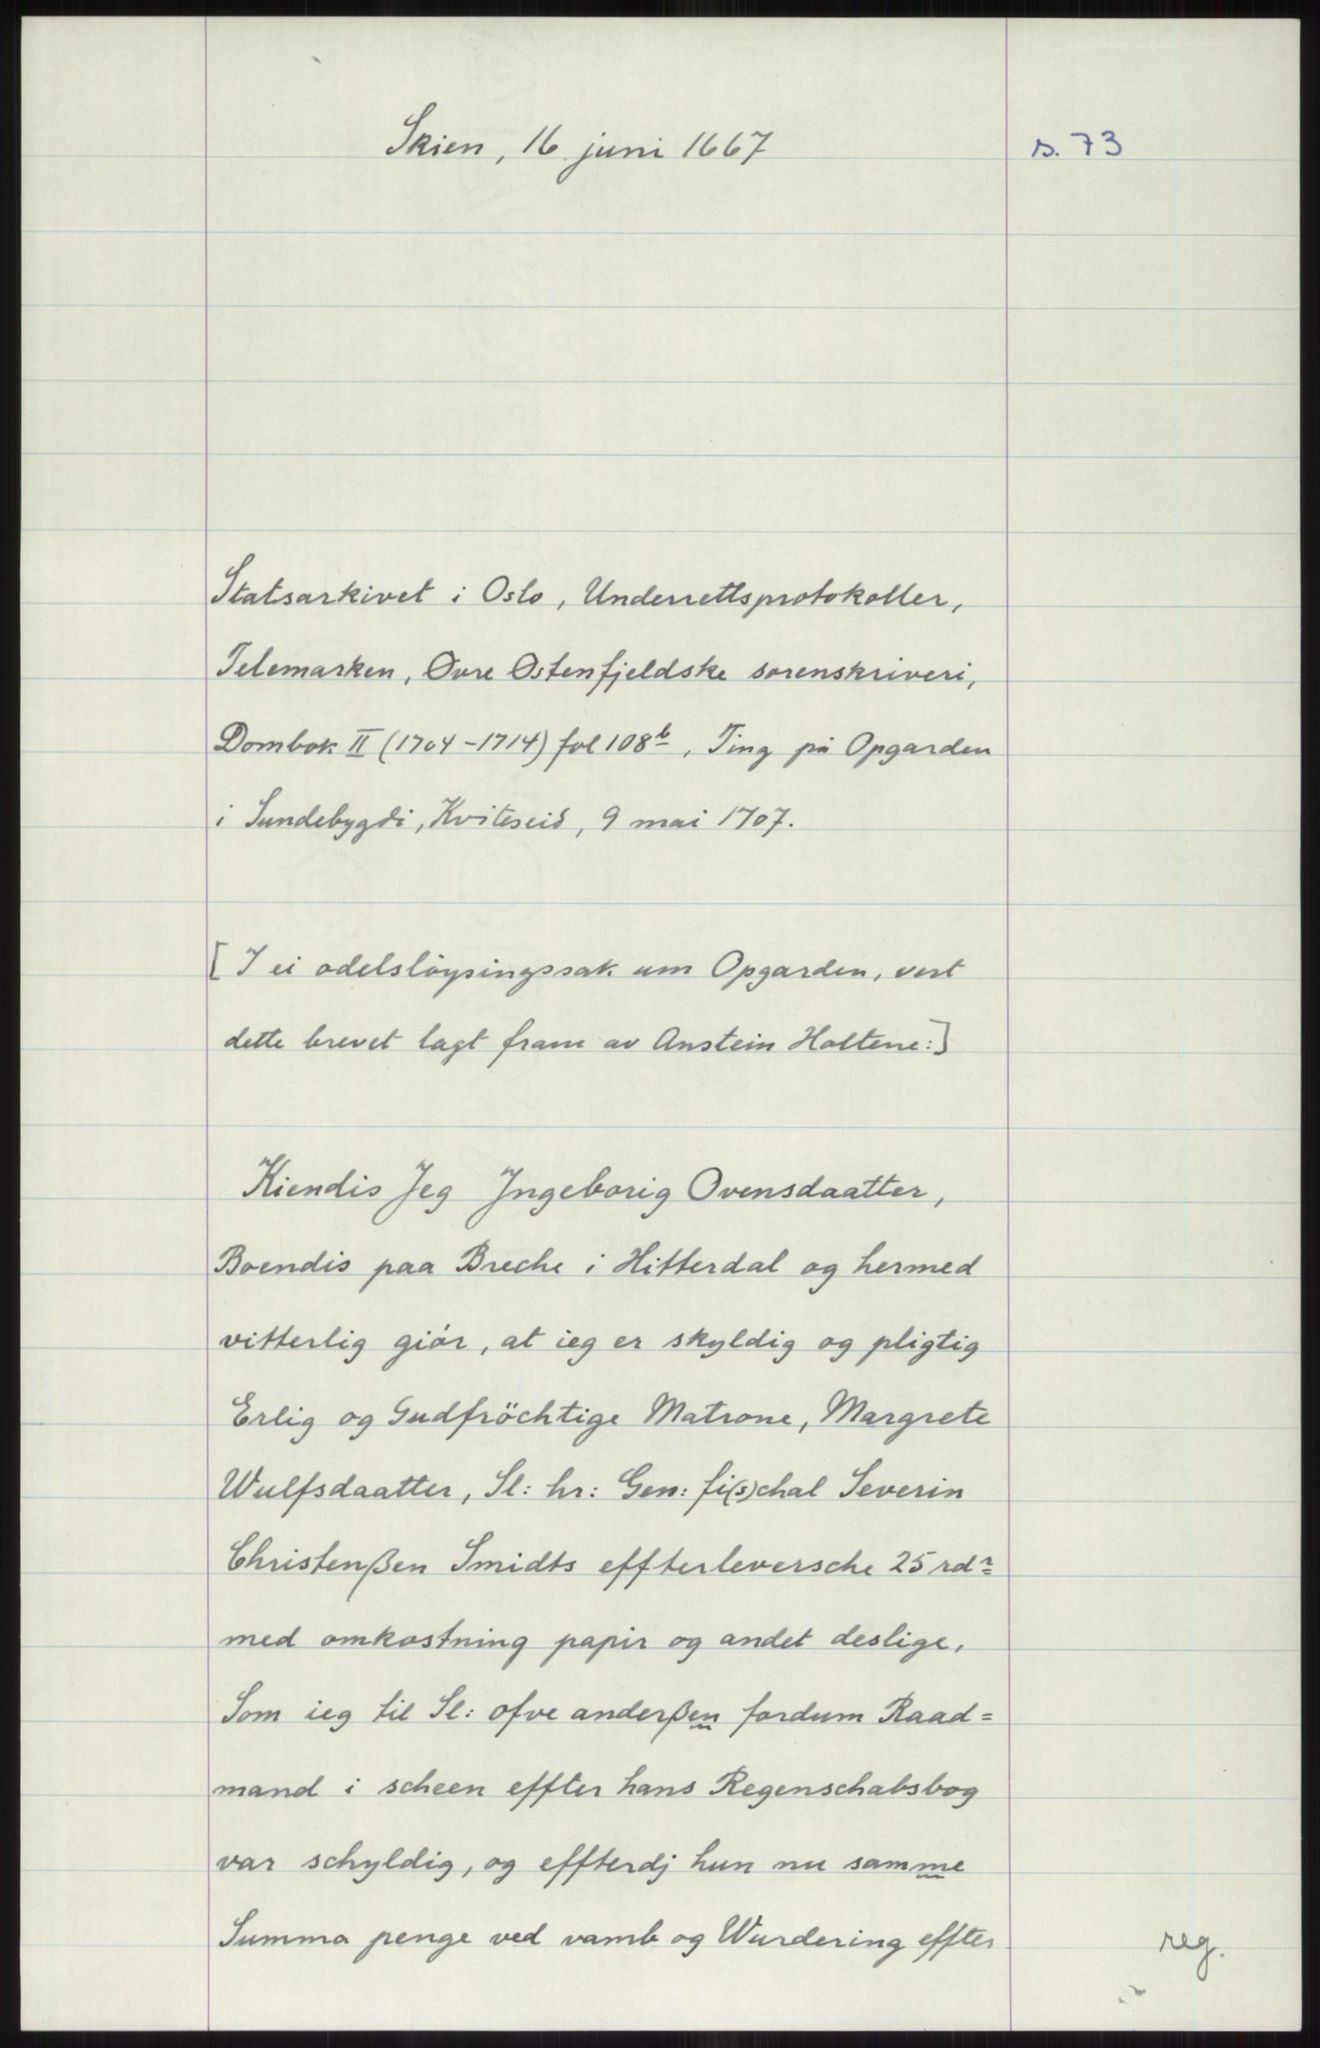 Skien, 16 juni 1667
s. 73
Statsarkivet i Oslo, Underrettsprotokoller,
Telemarken, Øvre Østenfjeldske sorenskriveri,
Dombok II (1704-1714) fol 108b, Ting på Opgarden
i Sundebygdi, Kviteseid, 9 mai 1707.
[I ei odelsløysingssak um Opgarden, vert
dette brevet lagt fram av Anstein Holtene:]
Kiendis Jeg Jngeborig Ovensdaatter,
Boendis paa Breche i Hitterdal og hermed
vitterlig giör, at ieg er skyldig og pligtig
Erlig og Gudfröchtige Matrone, Margrete
Wulfsdaatter, Sl: hr: Gen: fi(s)chal Severin
Christenßen Smidts effterleversche 25 rdr
med omkostning papir og andet deslige,
Som ieg til Sl: ofve anderßen fordum Raad=
mand i scheen effter hans Regenschabsbog
var schyldig, og effterdj hun nu samme
Summa penge ved vamb og Wurdering effter
reg.